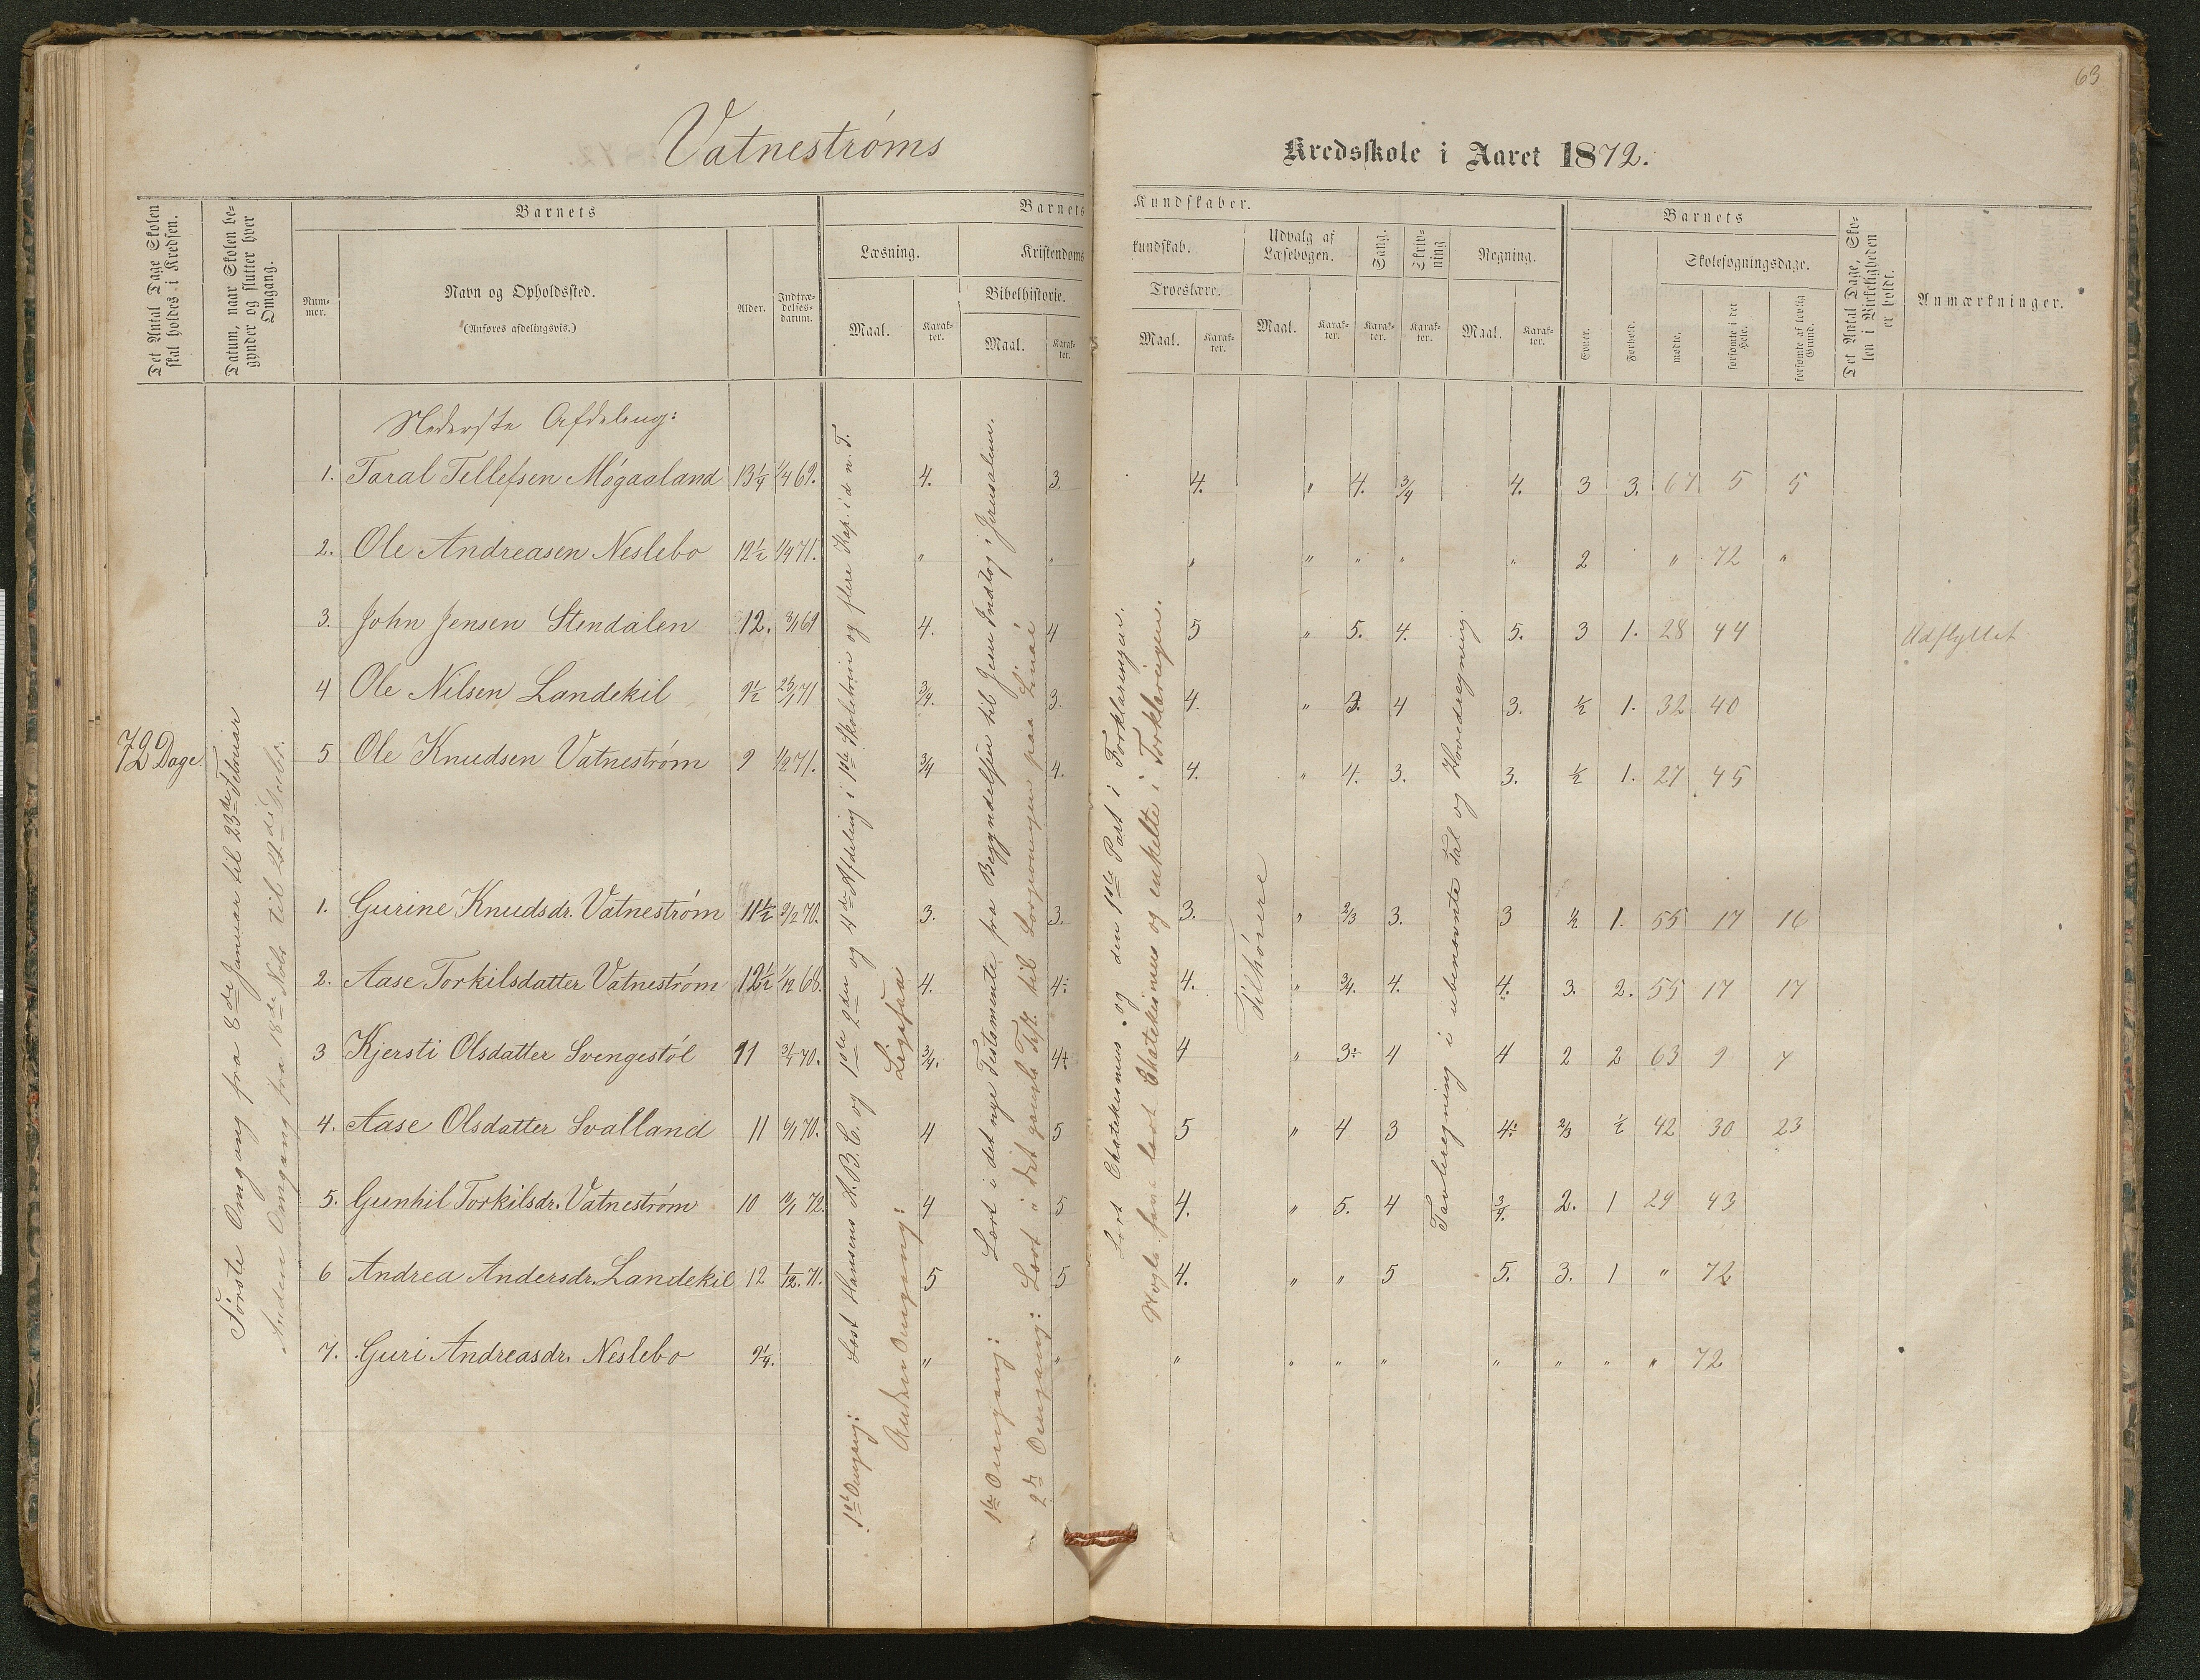 63
Vatnestrøms Kredsskole i Aaret 1872.
Det Antal Dage Skolen skal holdes i Kredsen.
Datum, naar Skolen begynder og slutter hver Omgang.
Barnets
Nummer.
Navn og Opholdssted.
(Anføres afdelingsvis.)
Alder.
Indtrædelsesdatum.
Barnets Kundskaber.
Læsning.
Maal.
Karakter.
Kristendomskundskab.
Bibelhistorie.
Maal.
Karakter.
Troeslære.
Maal.
Karakter.
Udvalg af Læsebogen.
Maal.
Karakter.
Sang.
Karakter.
Skrivning
Karakter.
Regning.
Maal.
Karakter.
Barnets
Evner.
Forhold.
Skolesøgningsdage.
mødte.
forsømte i det Hele.
forsømte af lovlig Grund.
Det Antal Dage, Skolen i Virkeligheden er holdt.
Anmærkninger.
72 Dage.
Første Omgang fra 8de Januar til 23de Februar
Anden Omgang fra 18de Nobr. til 21de Decbr.
Nederste Afdeling:
1. Taral Tellefsen Møgaaland 13 1/4 1/4 69. 4. 3. 4. " 4. 3/4 4. 3 3. 67 5 5
2. Ole Andreasen Neslebo 12 1/2 1/4 71. " " " " " " " 2 " 72 "
3. John Jensen Stendalen 12. 3/1 69 4. 4 5 " 5. 4. 5. 3 1. 28 44 Udflyttet
4 Ole Nilsen Landekil 9 1/2 25/1 71 3/4. 3. 4. " 3. 4 3. 1/2 1. 32 40
5 Ole Knudsen Vatnestrøm 9 1/2 71. 3/4 4. 4. " 4. 3. 3. 1/2 1. 27 45
1. Gurine Knudsdr. Vatnestrøm 11 1/2 9/12 70. 3. 3. 3. " 2/3 3. 3 1/2 1. 55 17 16
2. Aase Torkilsdatter Vatnestrøm 12 1/2 1/12 68. 4. 4÷ 4. " 3/4. 4. 4. 3. 2. 55 17 17
3 Kjersti Olsdatter Svengestøl 11 3/1 70. 3/4. 4+ 4 " 3÷ 4 4 2 2 63 9 7
4. Aase Olsdatter Svalland 11 6/1 70. 4 5 5 " 4 3 4÷ 2/3 1/2 42 30 23
5. Gunhil Torkilsdr. Vatnestrøm 10 /1 72. 4 5 4. " 5. 4 3/4. 2. 1 29 43
6 Andrea Andersdr. Landekil 12 1/12. 71. 5 5 4. " " 5 5. 3. 1 " 72
7. Guri Andreasdr. Neslebo 9 1/4. " " " " " " " " " " 72
1ste Omgang: Læst Hansens A.B.C. og 1ste 2den og 4de Afdeling i 1ste Skoletrin og flere Kap. i d. n. T.
Anden Omgang: Ligesaa
1ste Omgang: Læst i det nye Testamente fra Begyndelsen til Jesu Indtog i Jerusalem.
2den Omgang: Læst i det gamle Test. til Lovgivningen paa Sinai
Læst Chatekismus og den 1ste Part i Forklaringen.
Nogle have læst Chatekismus og enkelte i Forklaringen.
Tilhørere
Tavleregning i ubenævnte Tal og Hovedregning